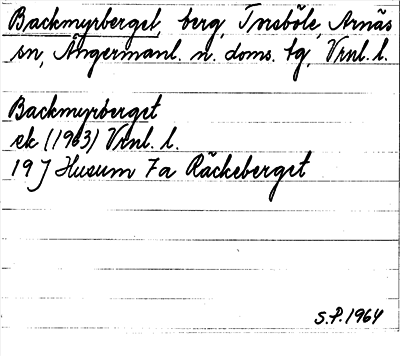 Backmyrberget, berg, Torsböle, Arnäs
sn, Ångermanl. n. doms. tg, Vrnl. l.
Backmyrberget
ek (1963) Vrnl. l.
19 J Husum 7a Räckeberget
S.P. 1964